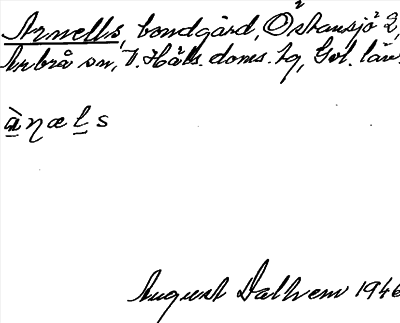 Arnells, bondgård, Östansjö 2,
Arbrå sn, V. Häls. doms. tg, Gvl. län.
à̲ ŋ æ l̲ s
August Dalhem 1946